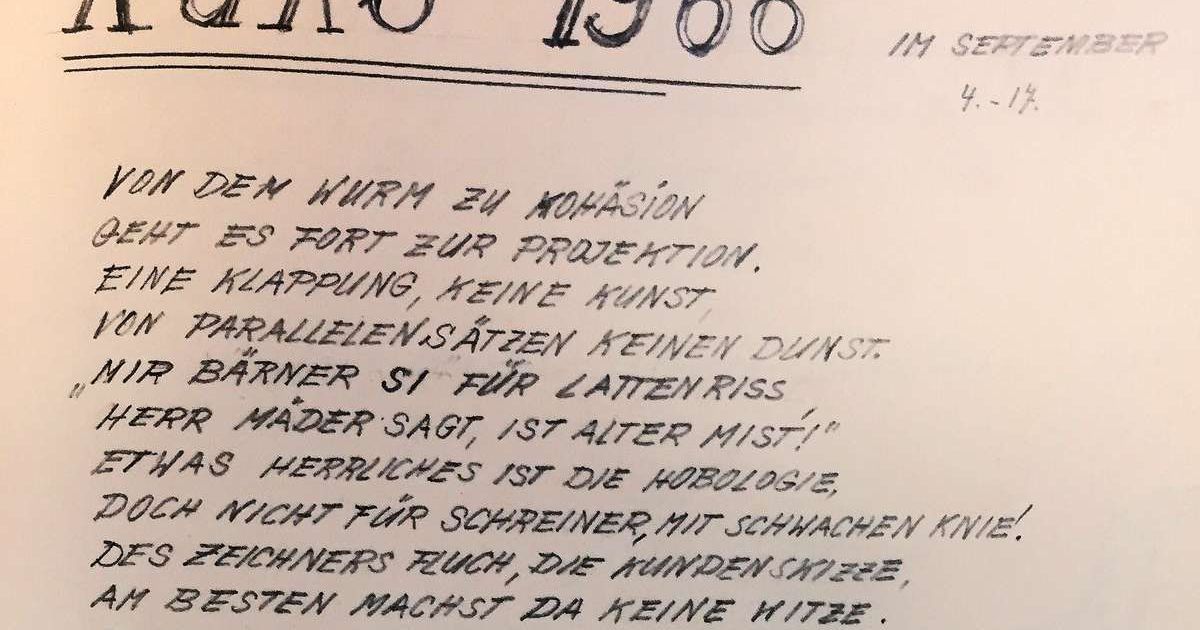 1966
IM SEPTEMBER
4. - 17.
VON DEM WURM ZU KOHÄSION
GEHT ES FORT ZUR PROJEKTION.
EINE KLAPPUNG, KEINE KUNST,
VON PARALLELEN SÄTZEN KEINEN DUNST.
„MIR BÄRNER SI FÜR LATTENRISS,
HERR MÄDER SAGT, IST ALTER MIST!"
ETWAS HERRLICHES IST DIE HOBOLOGIE,
DOCH NICHT FÜR SCHREINER, MIT SCHWACHEN KNIE!
DES ZEICHNERS FLUCH, DIE KUNDENSKIZZE,
AM BESTEN MACHST DA KEINE WITZE.